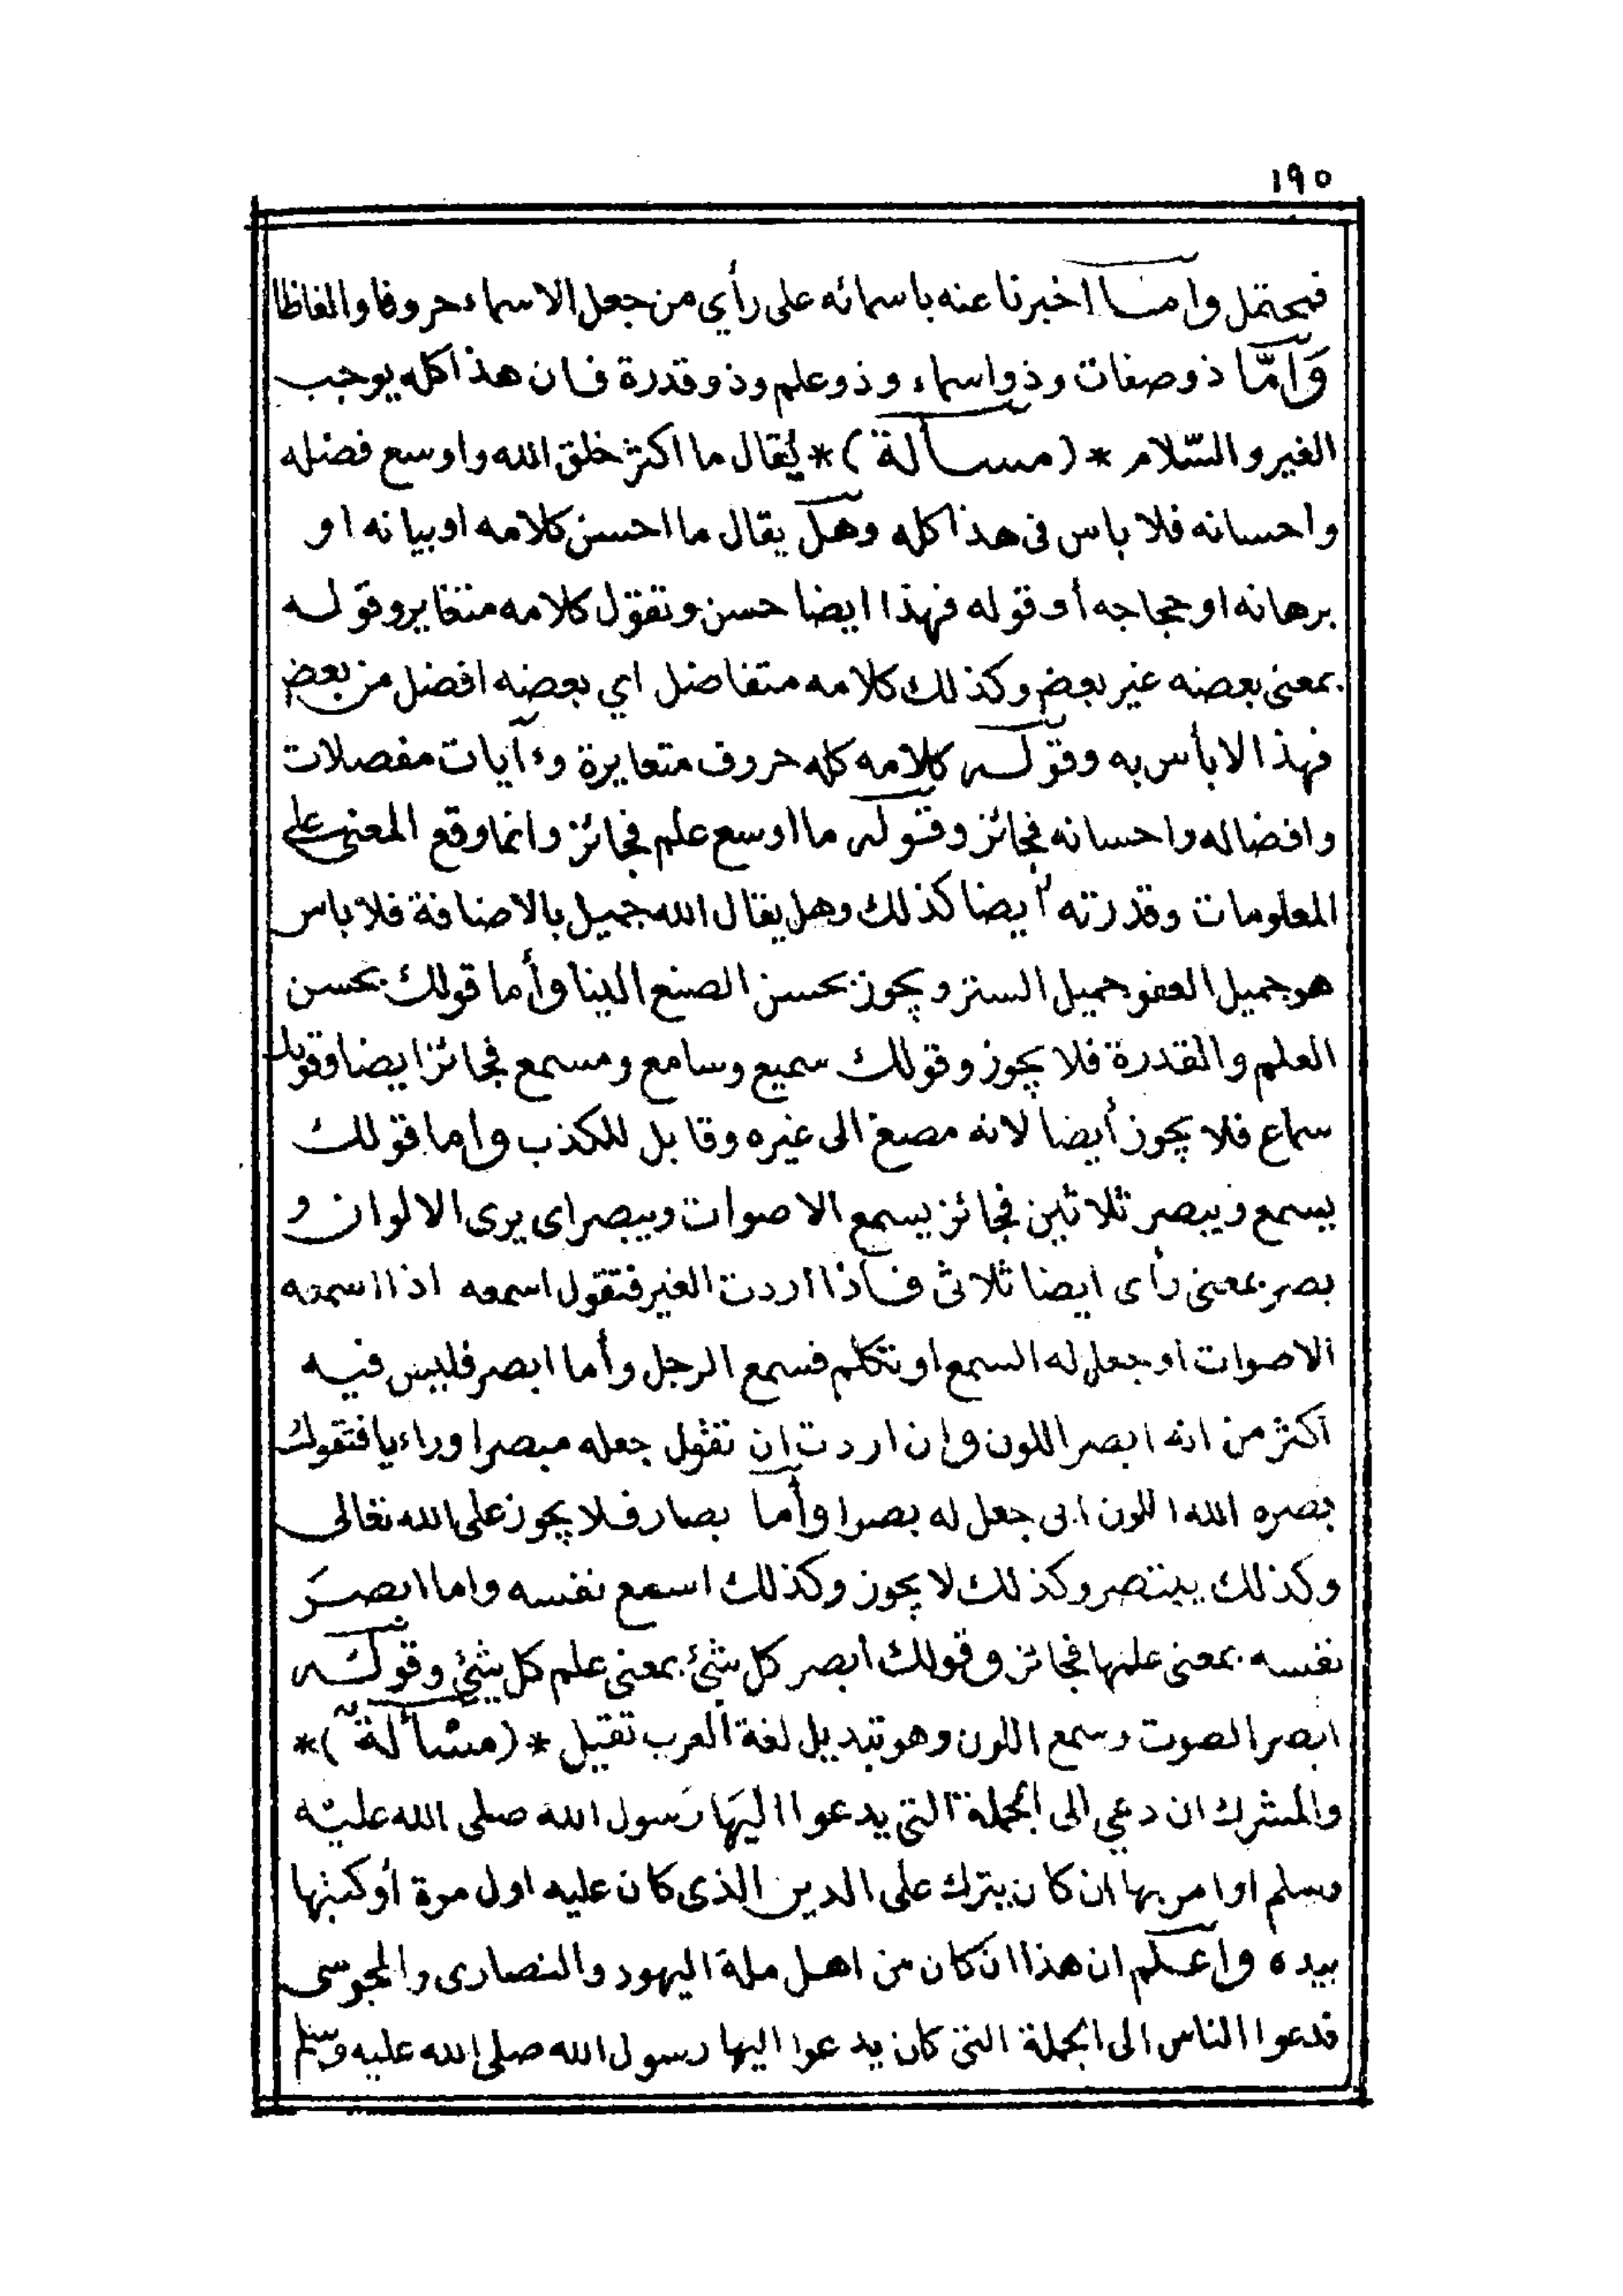 ١٩٠
فيحتمل وامـــا اخبرنا عنه باسمائه على رأي من جعل الاسماء حروفا والفاظا
وَأمّا ذو صفات وذو اسماء وذو علم وذو قدرة فان هذا كله يوجب
الغير والسّلام * (مسألة) * يُقال ما اكثر خلق الله واوسع فضله
واحسانه فلا باس فى هذا كله وهل يقال ما احسن كلامه او بيانه او
برهانه او حجاجه أو قوله فهذا ايضا حسن وتقول كلامه متغاير وقوله
بمعنى بعضه غير بعض وكذلك كلامه متفاضل اي بعضه افضل من بعض
فهذا لا بأس به وقوله كلامه كله حروف متغايرة وءآيات مفصلات
وافضاله واحسانه فجائز وقوله ما اوسع علم فجائز وانما وقع المعنى على
المعلومات وقدرته أيضا كذلك وهل يقال الله جميل بالاضافة فلا باس
هو جميل العفو جميل الستر ويجوز بحسن الصنع الينا وأما قولك بحسن
العلم والقدرة فلا يجوز وقولك سميع وسامع ومسمع فجائز ايضا وقولك
سماع فلا يجوز أيضا لانه مصغ الى غيره وقابل للكذب واما قولك
يسمع ويبصر ثلاثين فجائز يسمع الاصوات ويبصر اى يرى الالوان و
بصر بمعنى رأى ايضا ثلاثى فاذا اردت الغير فتقول اسمعه اذا اسمعه
الاصوات او جعل له السمع او تتكلم فسمع الرجل وأما ابصر فليس فيه
اكثر من انه ابصر اللون وان اردت ان تقول جعله مبصرا وراءيا فتقول
بصره الله اللون اى جعل له بصرا وأما بصار فلا يجوز على الله تعالى
وكذلك يبتصر وكذلك لا يجوز وكذلك اسمع نفسه واما ابصـرَ
نفسه بمعنى علمها فجائز وقولك ابصر كل شئ بمعنى علم كل شئ وقوله
ابصر الصوت وسمع اللون وهو تبديل لغة العرب تقيل * (مسألة) *
والمشرك ان دعي الى الجملة التى يدعوا اليهَا رَسول الله صلى الله عليه
وسلم او امر بها ان كان يترك على الدين الذى كان عليه اول مرة أو كتبها
بيده واعـلم ان هذا ان كان من اهل ملة اليهود والنصارى والمجوسى
فدعوا الناس الى الجملة التى كان يدعوا اليها رسول الله صلى الله عليه وسلم